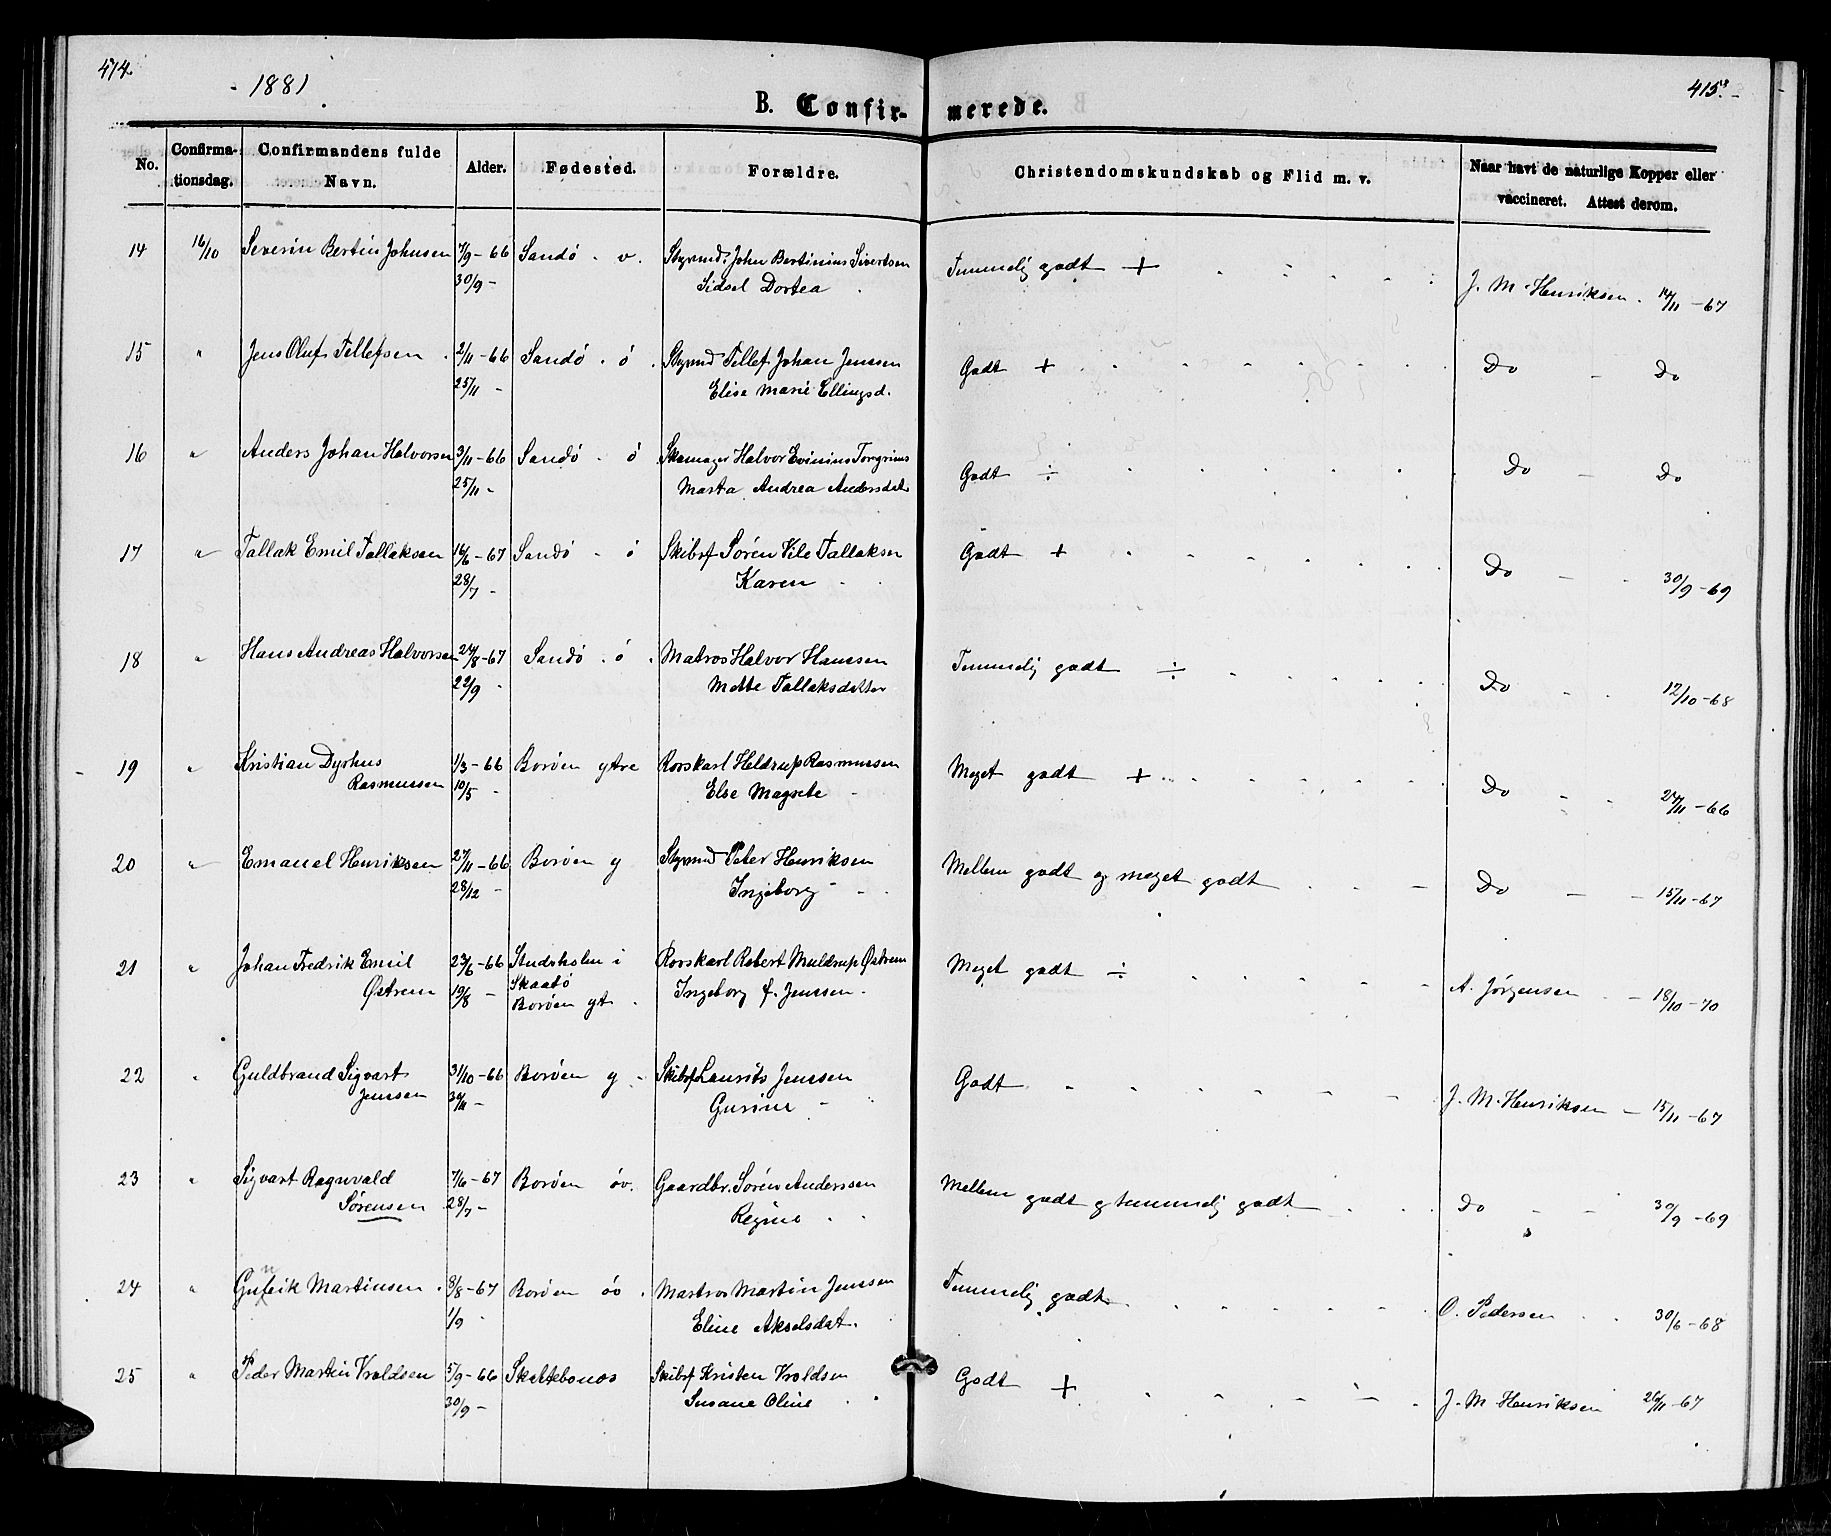 414.
1881
415.
B. Confir-merede.
No.
Confirma-tionsdag.
Confirmandens fulde Navn.
Alder.
Fødested.
Forældre.
Christendomskundskab og Flid m. v.
Naar havt de naturlige Kopper eller vaccineret. Attest derom.
14 16/10 Severin Bertin Johnsen 7/9-66 Sandö. v. Styrmd. John Bertinius Sivertsen Temmelig godt + J. M. Henriksen. 14/11-67
30/9- Sidsel Dortea
15 " Jens Oluf Tellefsen 2/11-66 Sandö. ö. Styrmd Tellef Johan Jenssen Godt + Do - Do
25/11- Elise Marie Ellingsd.
16 " Anders Johan Halvorsen 3/11-66 Sandö. ö Skomager Halvor Evinius Torgrims Godt ÷ Do - Do
25/11- Marta Andrea Andersdat
17 " Tallak Emil Tallaksen 16/6-67 Sandö. ö Skibsf Sören Vile Tallaksen Godt + Do - 30/9-69
28/7- Karen
18 " Hans Andreas Halvorsen 24/8-67 Sandö. ö. Matros Halvor Hanssen Temmelig godt ÷ Do 12/10-68
22/9- Mette Tallaksdatter
19 " Kristian Dyrhus 1/3-66 Boröen ytre Rorskarl Heldrup Rasmussen Meget godt + Do 24/11-66
Rasmussen 10/5- Else Magrete
20 " Emanuel Henriksen 27/11-66 Boröen y Styrmd Peter Henriksen Mellem godt og meget godt Do - 15/11-67
28/12- Ingeborg
21 " Johan Fredrik Emil 23/6-66 Studsholm i Rorskarl Robert Muldrup Østrem Meget godt ÷ A. Jörgensen - 18/10-70
Østrem 19/8- Skaatö Ingeborg f. Jenssen.
Boröen yt.
22 " Guldbrand Sigvart 31/10-66 Boröen y. Skibsf Laurits Jenssen Godt J. M. Henriksen - 15/11-67
Jenssen 30/11- Gurine
23 " Sigvart Ragnvald 7/6-67 Boröen öv. Gaardbr. Sören Anderssen Mellem godt og temmelig godt Do - 30/9-69
Sørensen 28/7- Regine
24 " Gunerik Martinsen. 8/8-67 Boröen öv. Martros Martin Jenssen Temmelig godt O. Pedersen 30/6-68
1/9 Eline Akselsdat.
25 " Peder Martin Vroldsen 5/9-66 Skattebonæs Skibsf Kristen Vroldsen Godt + J. M Henriksen 26/11-67
30/9- Susane Oline